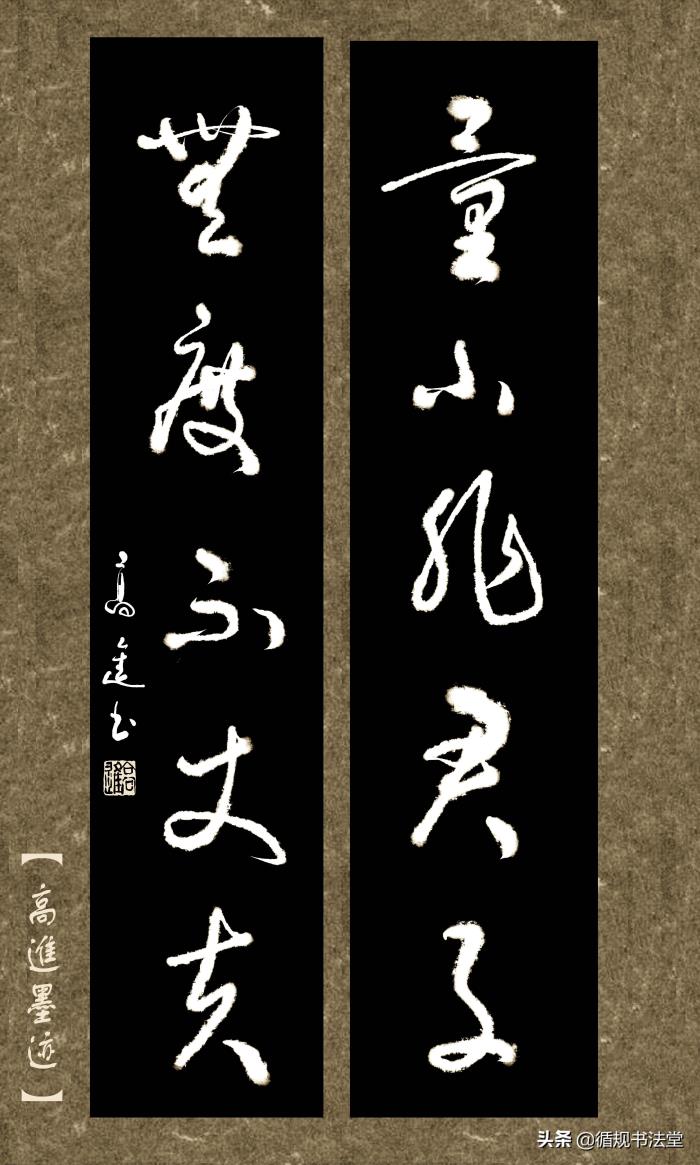 量小非君子
無度不丈夫
高進书
高進
【高進墨迹】
头条 @循规书法堂